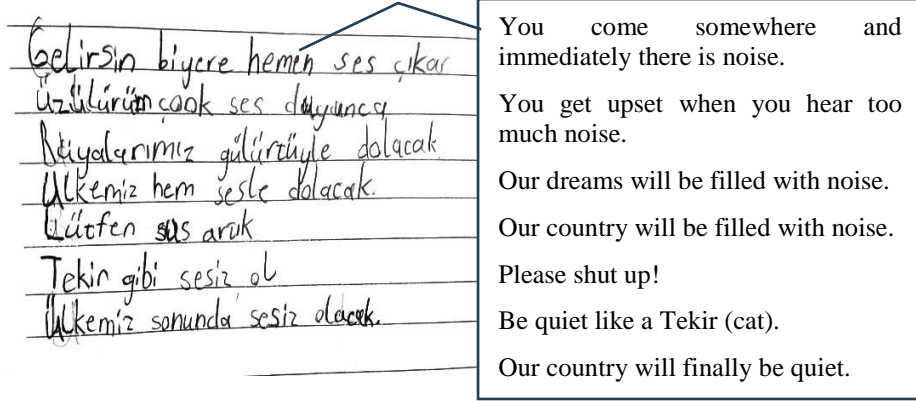 Gelirsin biyere hemen ses çıkar
Üzülürüm çook ses duyunca
Rüyalarımız gülürtüyle dolacak
Ülkemiz hem sesle dolacak.
Lütfen sus artık
Tekir gibi sesiz ol
Ülkemiz sonunda sesiz olacak.
You come somewhere and
immediately there is noise.
You get upset when you hear too
much noise.
Our dreams will be filled with noise.
Our country will be filled with noise.
Please shut up!
Be quiet like a Tekir (cat).
Our country will finally be quiet.